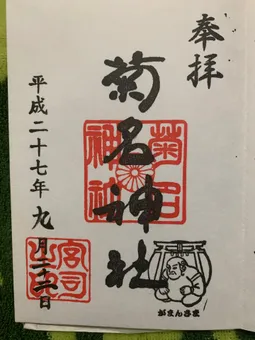 奉拝
菊名神社
菊名
神社
平成二十七年九月二十二日
宮司
がまんさま